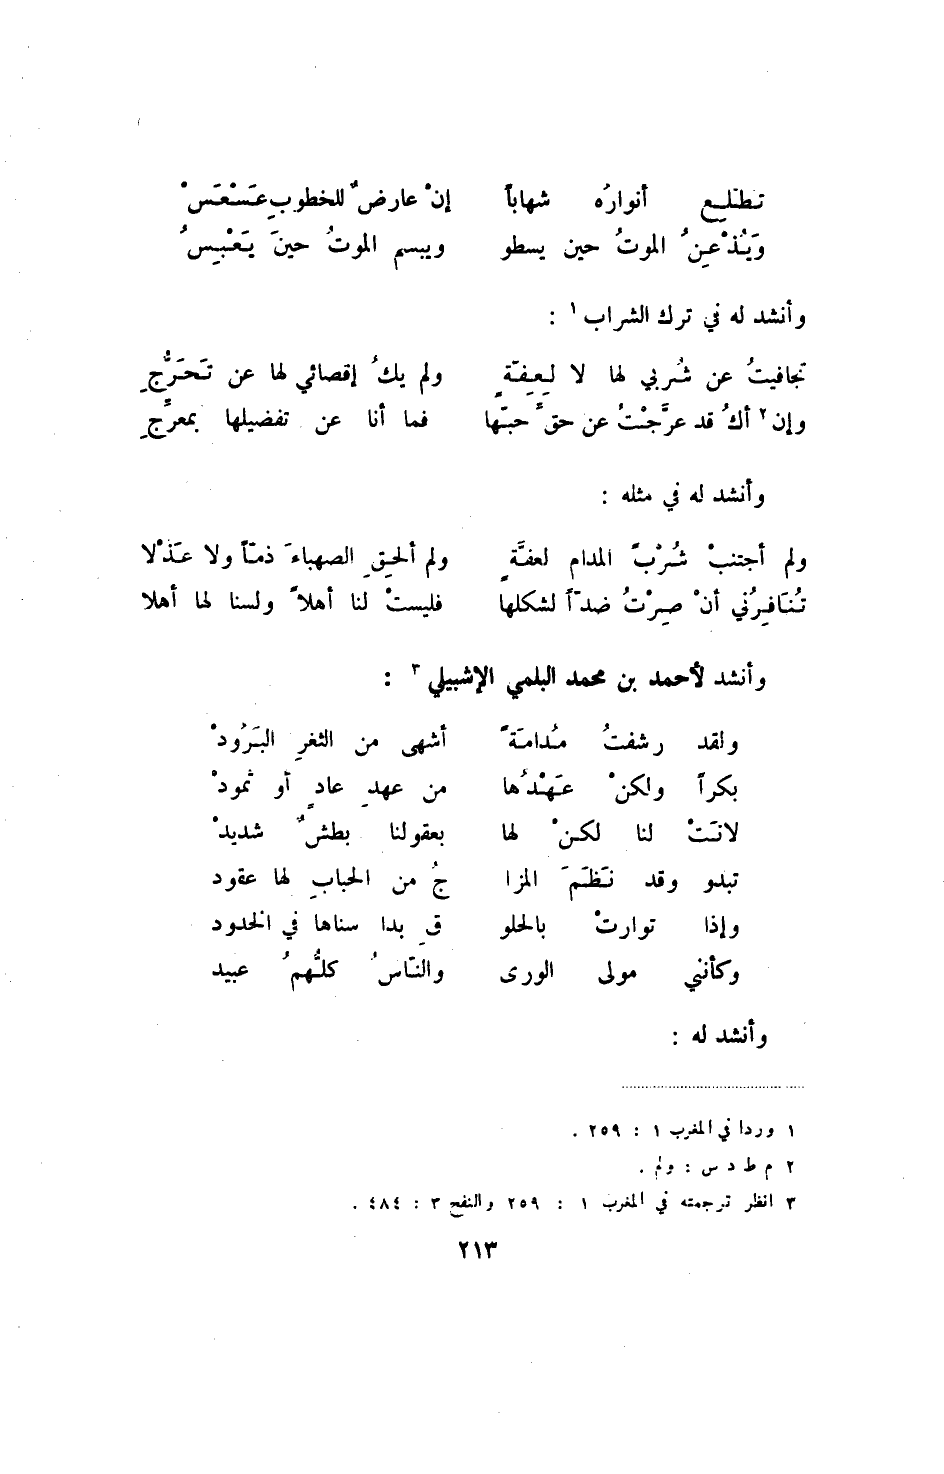 تطلع أنوارُه شهاباً إنْ عارضٌ للخطوبِ عَسْعَسْ
وَيُذْعِنُ الموتُ حين يسطو ويبسم الموتُ حينَ يَعْبِسُ
وأنشد له في ترك الشراب ١ :
تجافيتُ عن شُربي لها لا لِعِفّةٍ ولم يكُ إقصائي لها عن تَحَرُّجِ
وإن ٢ أكُ قد عرَّجْتُ عن حقَّ حبّها فما أنا عن تفضيلها بمعرَّجِ
وأنشد له في مثله :
ولم أجتنبْ شُرْبَ المدام لعفَّةٍ ولم ألحِقِ الصهباءَ ذمّاً ولا عَذْلا
تُنَافِرُني أنْ صِرْتُ ضدّاً لشكلها فليستْ لنا أهلاً ولسنا لها أهلا
وأنشد لأحمد بن محمد البلمي الإشبيلي ٣ :
ولقد رشفتُ مُدامَةً أشهى من الثغرِ البَرُودْ
بكراً ولكنْ عَهْدُها من عهدِ عادٍ أو ثمودْ
لانَتْ لنا لكنْ لها بعقولنا بطشٌ شديدْ
تبدو وقد نَظَمَ المزا جُ من الحبابِ لها عقود
وإذا توارتْ بالحلو قِ بدا سناها في الخدود
وكأنني مولى الورى والنّاسُ كلُّهمُ عبيد
وأنشد له :
١ وردا في المغرب ١ : ٢٥٩ .
٢ م ط د س : ولم .
٣ انظر ترجمته في المغرب ١ : ٢٥٩ والنفح ٣ : ٤٨٤ .
٢١٣